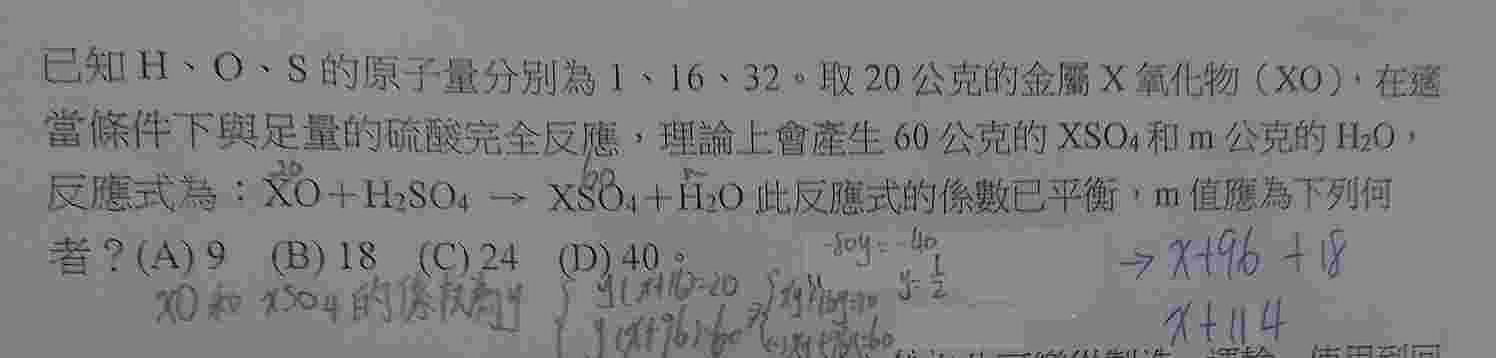 已知 H、O、S 的原子量分別為 1、16、32。取 20 公克的金屬 X 氧化物（XO），在適
當條件下與足量的硫酸完全反應，理論上會產生 60 公克的 XSO₄ 和 m 公克的 H₂O，
20 60 m
反應式為：XO＋H₂SO₄ → XSO₄＋H₂O 此反應式的係數已平衡，m 值應為下列何
者？(A) 9 (B) 18 (C) 24 (D) 40。
-80y=-40
y=1/2
→ x+96 +18
x+114
xO 和 xSO4 的係數為y
y(x+16)=20
y(x+96)=60
xy+16y=20